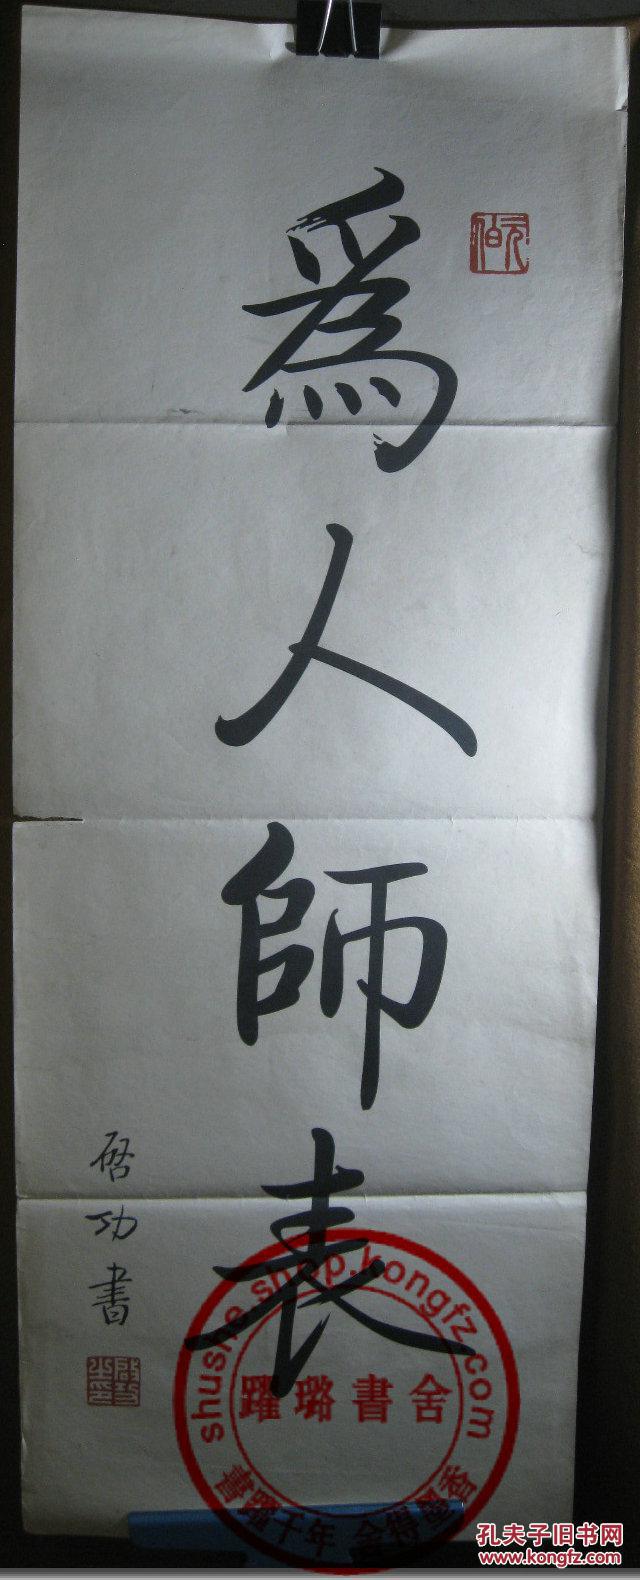 為人師表
元伯
啓功書
啓功之印
shushe.shop.kongfz.com
躍璐書舍
書躍千年 舍得璺香
孔夫子旧书网
www.kongfz.com